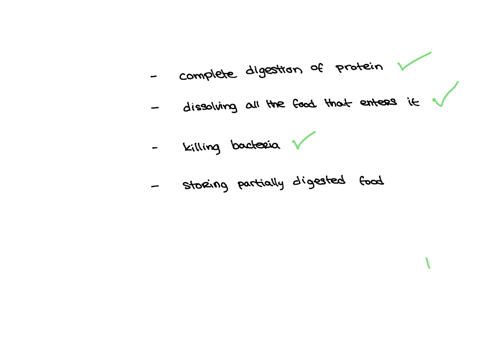 - complete digestion of protein ✓
- dissolving all the food that enters it ✓
- killing bacteria ✓
- storing partially digested food